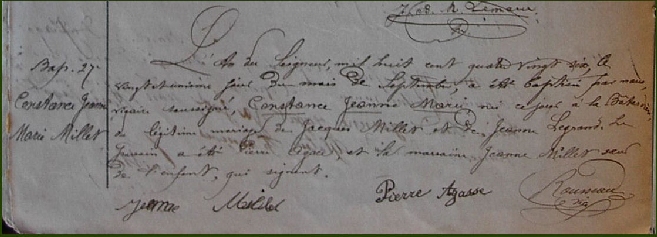 Th. M. Lemaur
L'An du Seigneur, mil huit cent quatre vingt six, le
Bap. 27e
vingt-troisième jour du mois de Septembre, a été baptisée par nous,
Constance Jeanne
vicaire soussigné, Constance Jeanne Marie née ce jour à la
Marie Millet
du légitime mariage de Jacques Millet et de Jeanne Legrand. Le
parrain a été Pierre Agasse, et la marraine Jeanne Millet sœur
de l'enfant, qui signent.
Jeanne Millet
Pierre Agasse
Rousseau
vic